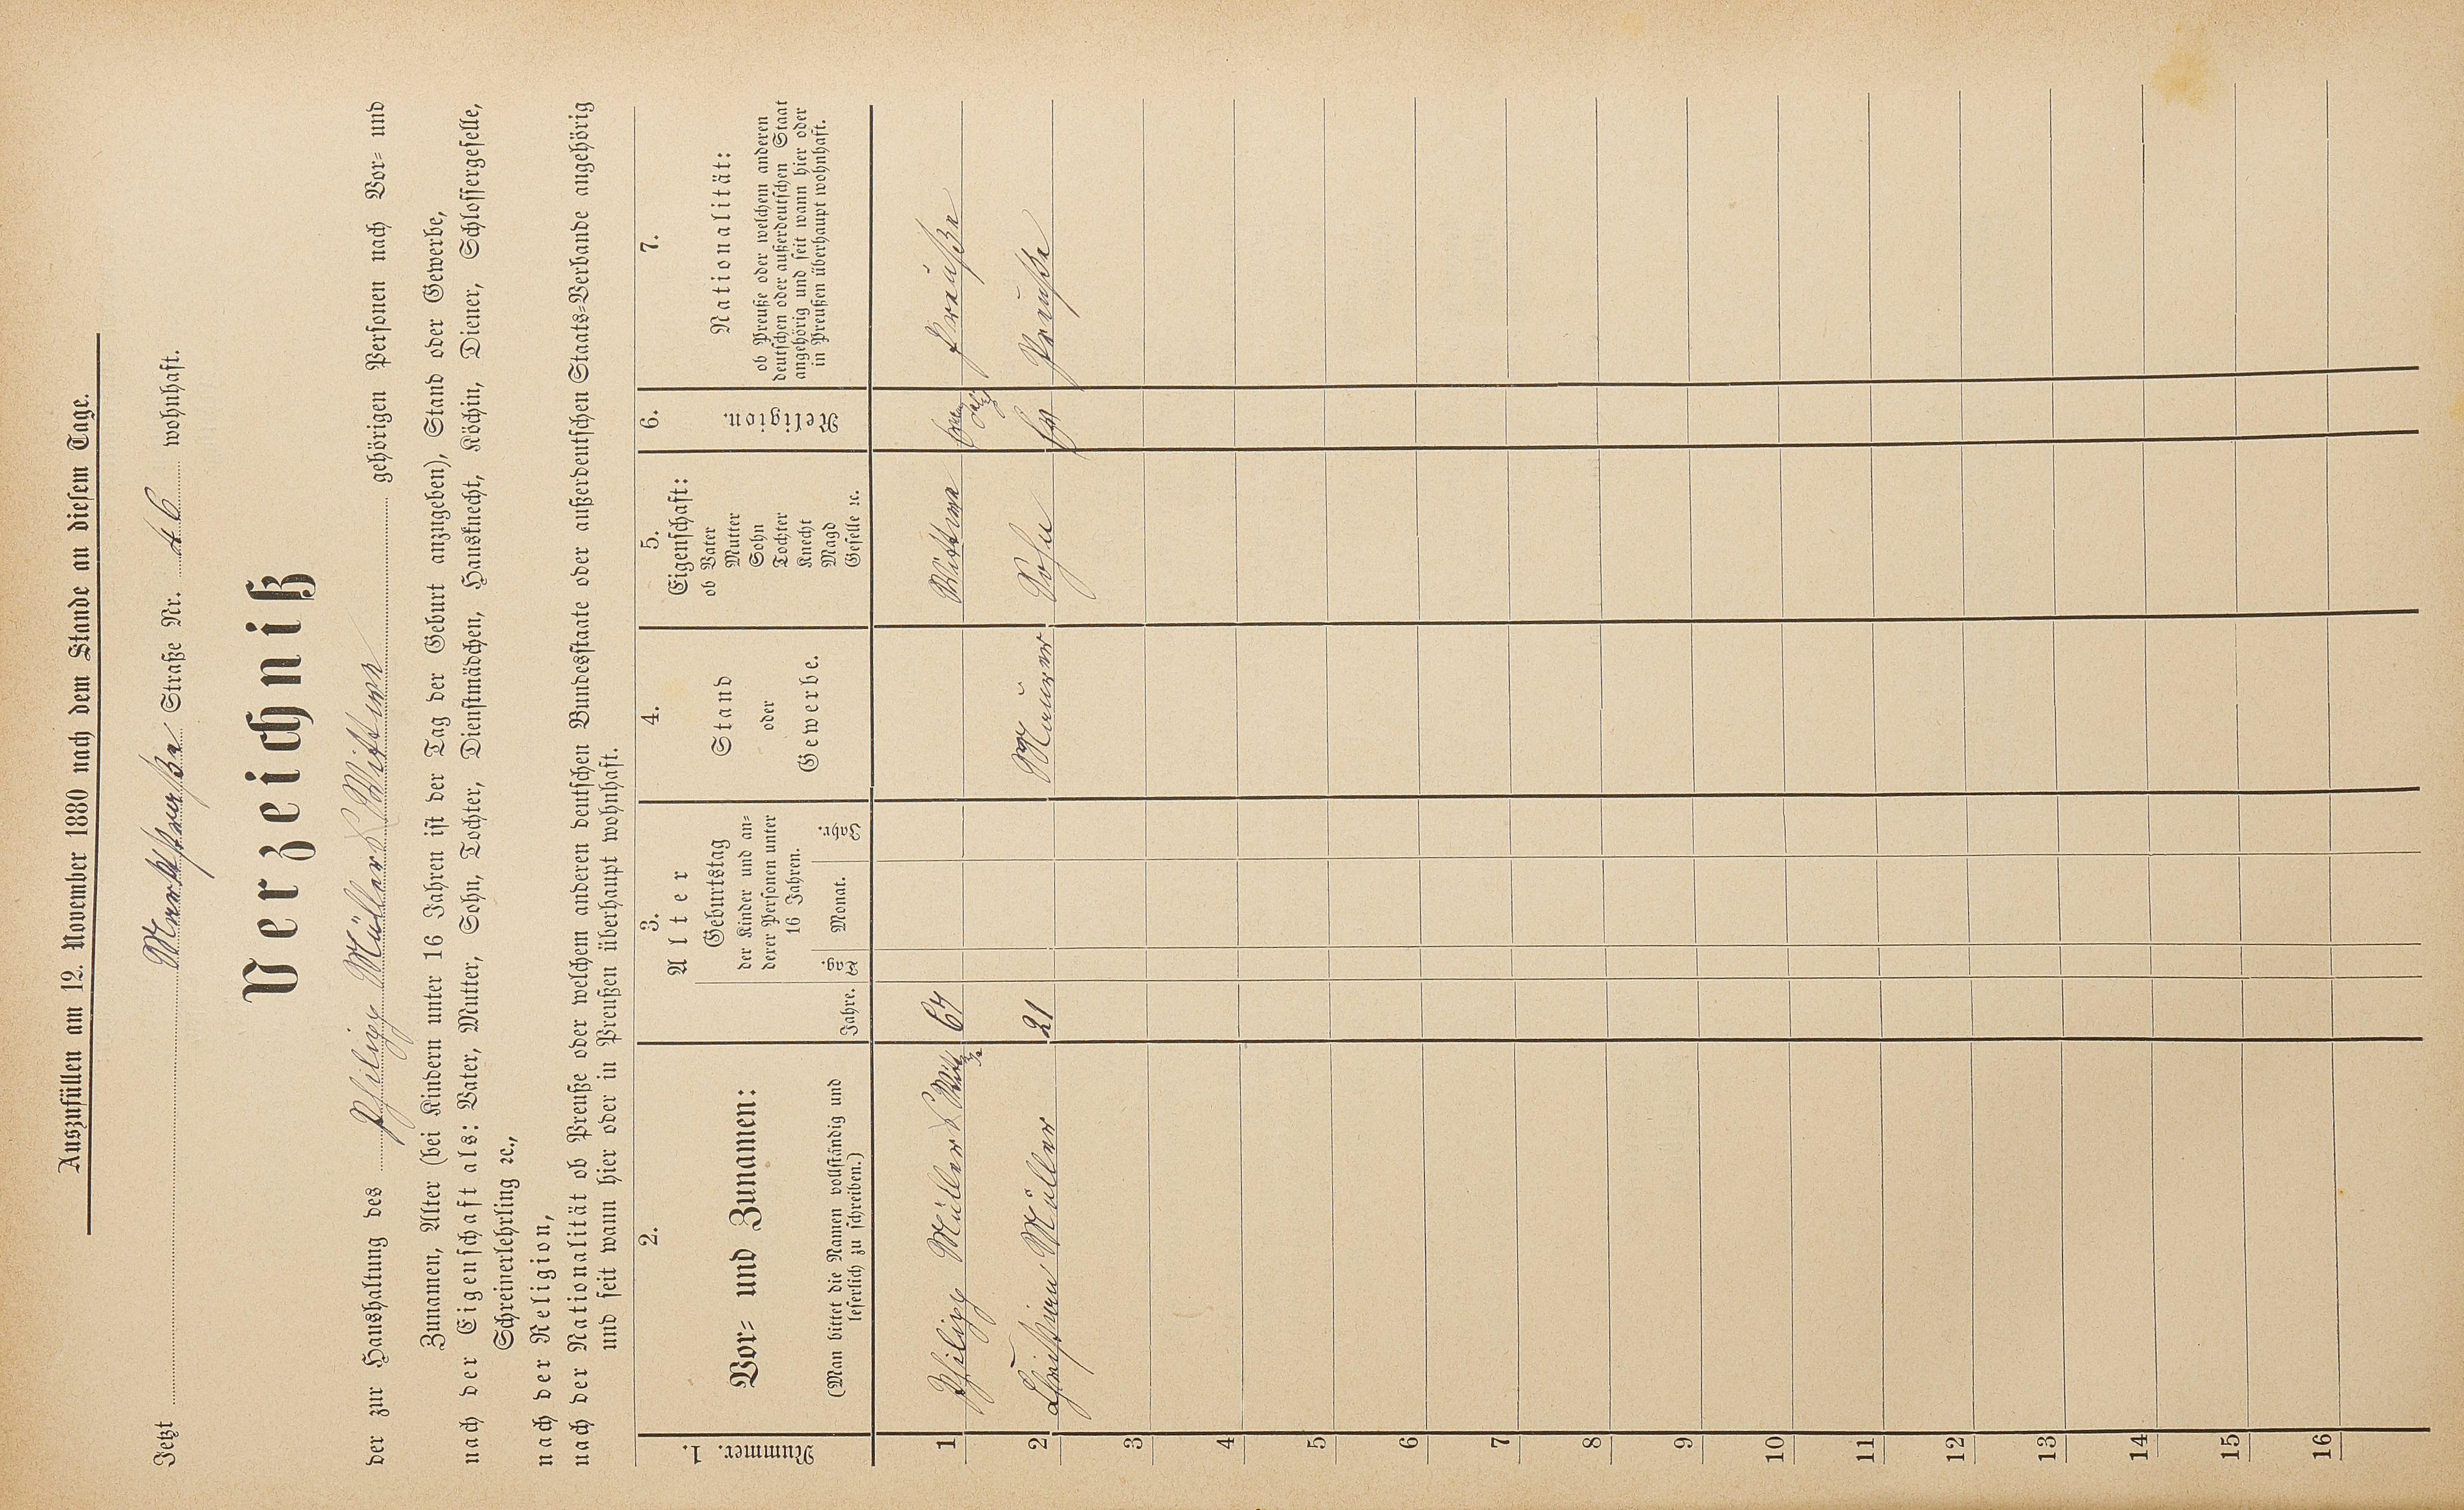 Auszufüllen am 12. November 1880 nach dem Stande an diesem Tage.
Jetzt Marktstraße Straße Nr. 46 wohnhaft.
Verzeichniß
der zur Haushaltung des Philipp Müller Wittwe gehörigen Personen nach Vor- und
Zunamen, Alter (bei Kindern unter 16 Jahren ist der Tag der Geburt anzugeben), Stand oder Gewerbe,
nach der Eigenschaft als: Vater, Mutter, Sohn, Tochter, Dienstmädchen, Hausknecht, Köchin, Diener, Schlossergeselle,
Schreinerlehrling ꝛc.,
nach der Religion,
nach der Nationalität ob Preuße oder welchem anderen deutschen Bundesstaate oder außerdeutschen Staats-Verbande angehörig
und seit wann hier oder in Preußen überhaupt wohnhaft.
1.
Nummer.
2.
Vor- und Zunamen:
(Man bittet die Namen vollständig und
leserlich zu schreiben.)
3.
Alter
Jahre.
Geburtstag
der Kinder und an-
derer Personen unter
16 Jahren.
Tag.
Monat.
Jahr.
4.
Stand
oder
Gewerbe.
5.
Eigenschaft:
ob Vater
Mutter
Sohn
Tochter
Knecht
Magd
Geselle ꝛc.
6.
Religion.
7.
Nationalität:
ob Preuße oder welchem anderen
deutschen oder außerdeutschen Staat
angehörig und seit wann hier oder
in Preußen überhaupt wohnhaft.
1 Philipp Müller 64 Wittwe Preuße
2 Christian Müller 21 Maurer Sohn Preuße
3
4
5
6
7
8
9
10
11
12
13
14
15
16